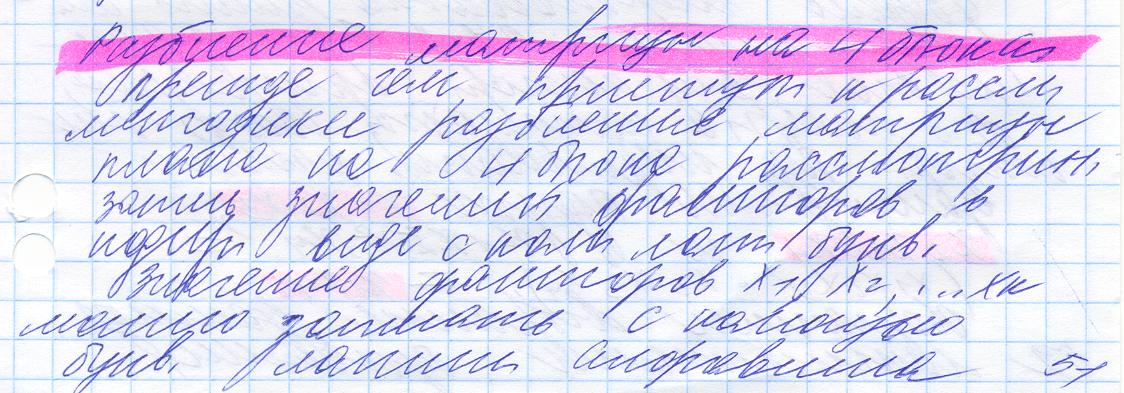 Разбиение матрицы на 4 блока
прежде чем приступ к рассм
методики разбиение матрицы
плана на 4 блока рассмотрим
запись значений факторов в
виде с пом лат букв.
Значение факторов x1, x2, ... xк
можно записать с помощью
букв. латин алфавита 51